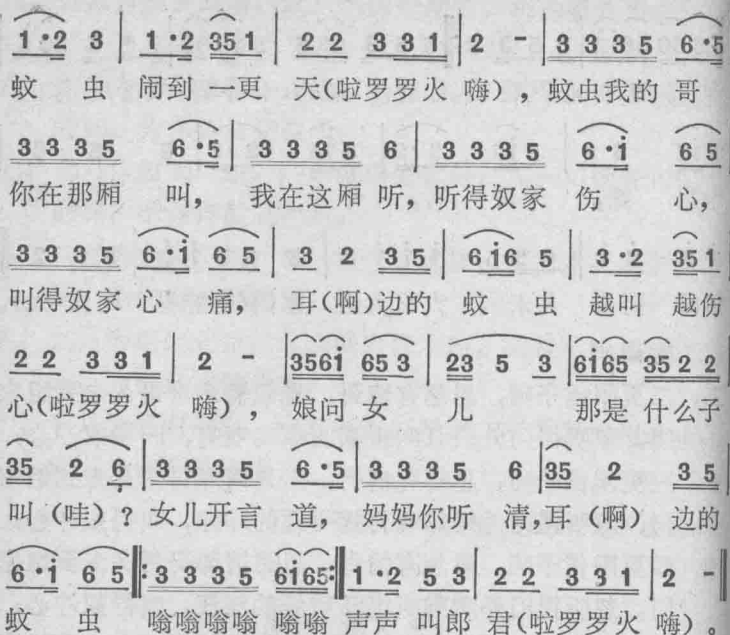 1·2 3 | 1·2 35 1 | 2 2 3 3 1 | 2 - | 3 3 3 5 6·5
蚊 虫 闹到 一更 天(啦罗罗火 嗨)，蚊虫我的 哥
3 3 3 5 6·5 | 3 3 3 5 6 | 3 3 3 5 6·i 6 5
你在那厢 叫， 我在这厢 听，听得奴家 伤 心，
3 3 3 5 6·i 6 5 | 3 2 3 5 | 6i6 5 | 3·2 35 1
叫得奴家 心 痛， 耳(啊)边的 蚊 虫 越叫 越伤
2 2 3 3 1 | 2 - | 356i 65 3 | 23 5 3 | 6i65 35 2 2
心(啦罗罗火 嗨)， 娘问 女 儿 那是 什么子
35 2 6 | 3 3 3 5 6·5 | 3 3 3 5 6 | 35 2 3 5
叫(哇)？女儿开言 道， 妈妈你听 清，耳(啊) 边的
6·i 6 5 |: 3 3 3 5 6i65 :| 1·2 5 3 | 2 2 3 3 1 | 2 - |
蚊 虫 嗡嗡嗡嗡 嗡嗡 声声 叫郎 君(啦罗罗火 嗨)。